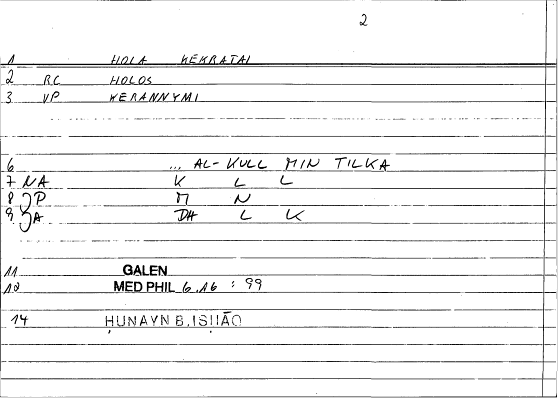 2
1 HOLA KEKRATAI
2 RC HOLOS
3 VP KERANNYMI
6 ... AL-KULL MIN TILKA
7 NA K L L
8 JP M N
9 JA DH L K
11 GALEN
10 MED PHIL 6.16 : 99
14 ḤUNAYN B. ISḤĀQ